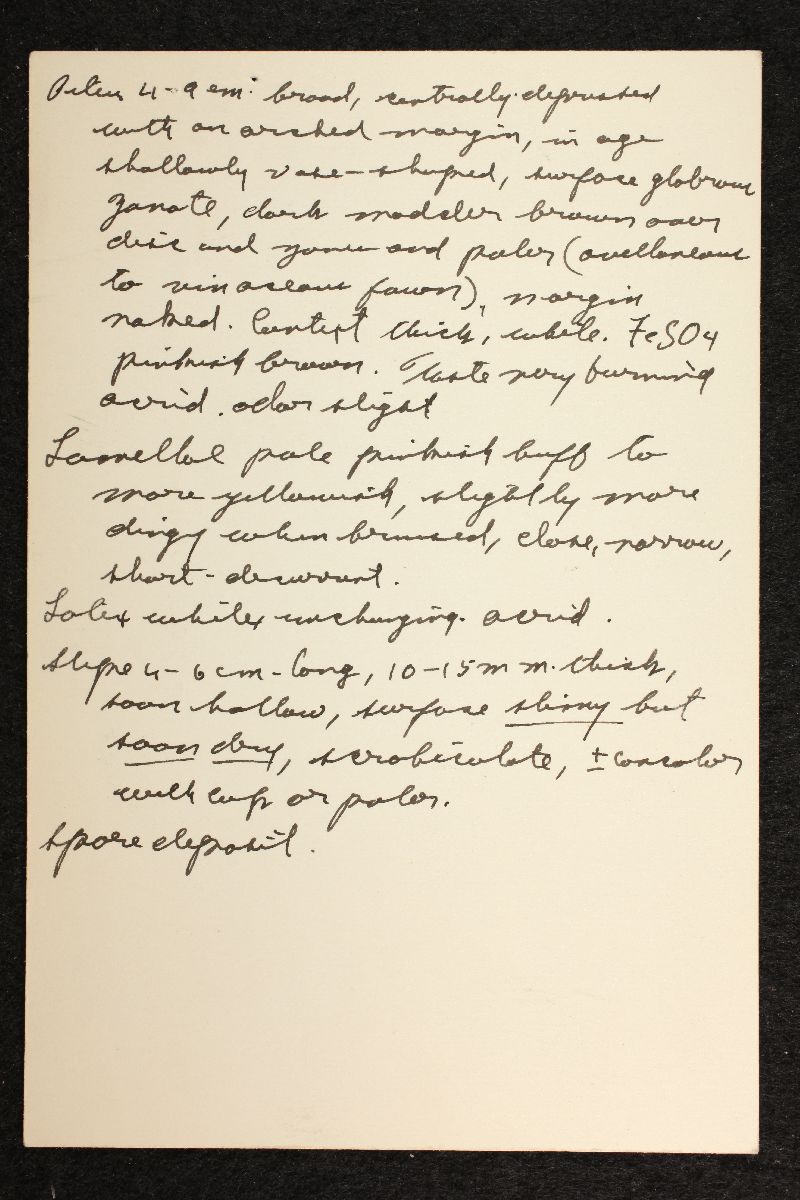 Pileus 4-9 cm. broad, centrally depressed
with an arched margin, in age
shallowly vase-shaped, surface glabrous
zonate, dark madder brown over
disc and zones and paler (avellaneous
to vinaceous fawn), margin
naked. Context thick, white. FeSO4
pinkish brown. Taste very burning
acrid. odor slight
Lamellae pale pinkish buff to
more yellowish, slightly more
dingy when bruised, close, narrow,
short-decurrent.
Latex white, unchanging. acrid.
Stipe 4-6 cm-long, 10-15 mm. thick,
soon hollow, surface slimy but
soon dry, scrobiculate, ± concolor
with cap or paler.
Spore deposit.